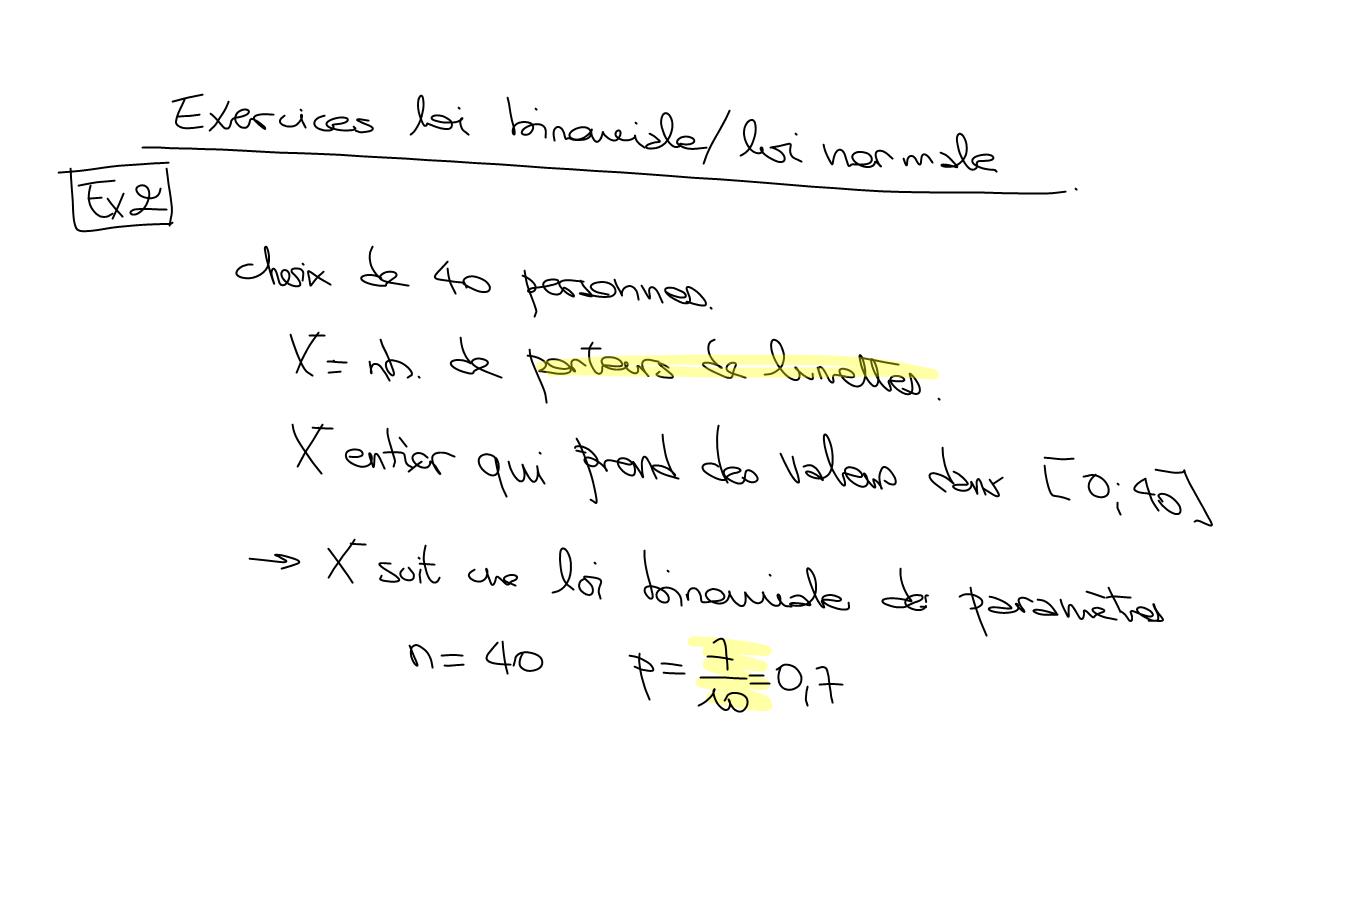 Exercices loi binomiale/loi normale
Ex2
choix de 40 personnes.
X = nb. de porteurs de lunettes.
X entier qui prend des valeurs dans [0; 40]
→ X suit une loi binomiale de paramètres
n = 40 p = 7/10 = 0,7